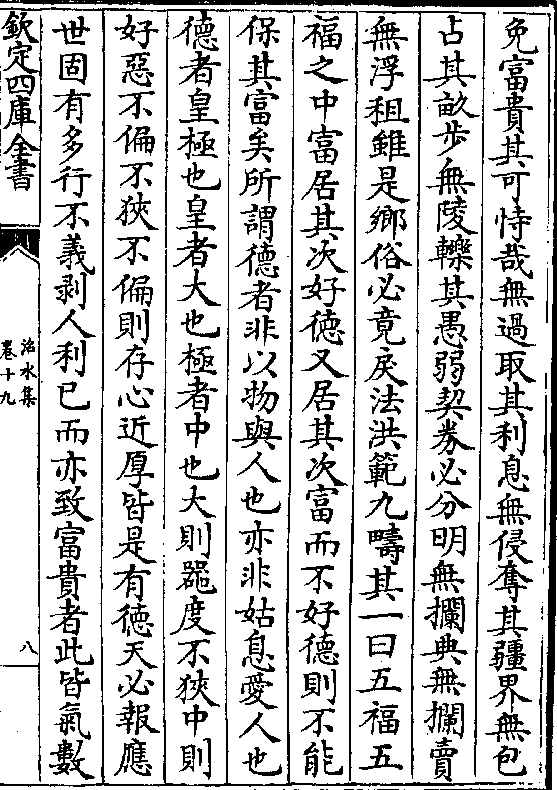 免富貴其可恃哉無過取其利息無侵奪其疆界無包
占其畝步無陵轢其愚弱契券必分明無攔典無攔賣
無浮租雖是鄉俗必竟戾法洪範九疇其一曰五福五
福之中富居其次好德又居其次富而不好德則不能
保其富矣所謂德者非以物與人也亦非姑息愛人也
德者皇極也皇者大也極者中也大則噐度不狹中則
好惡不偏不狹不偏則存心近厚皆是有德天必報應
世固有多行不義剥人利已而亦致富貴者此皆氣數
欽定四庫全書
洺水集
卷十九
八